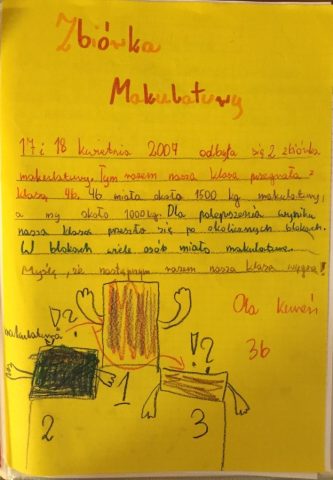 Zbiórka
Makulatury
17 i 18 kwietnia 2007 odbyła się 2 zbiórka
makulatury. Tym razem nasza klasa przegrała z
klasą 4b. 4b miała około 1500 kg makulatury,
a my około 1000kg. Dla polepszenia wyniku
nasza klasa przeszła się po okolicznych blokach.
W blokach wiele osób miało makulaturę.
Myślę, że następnym razem nasza klasa wygra!
Ola
3b
makulatura
!?
!?
1
2
3